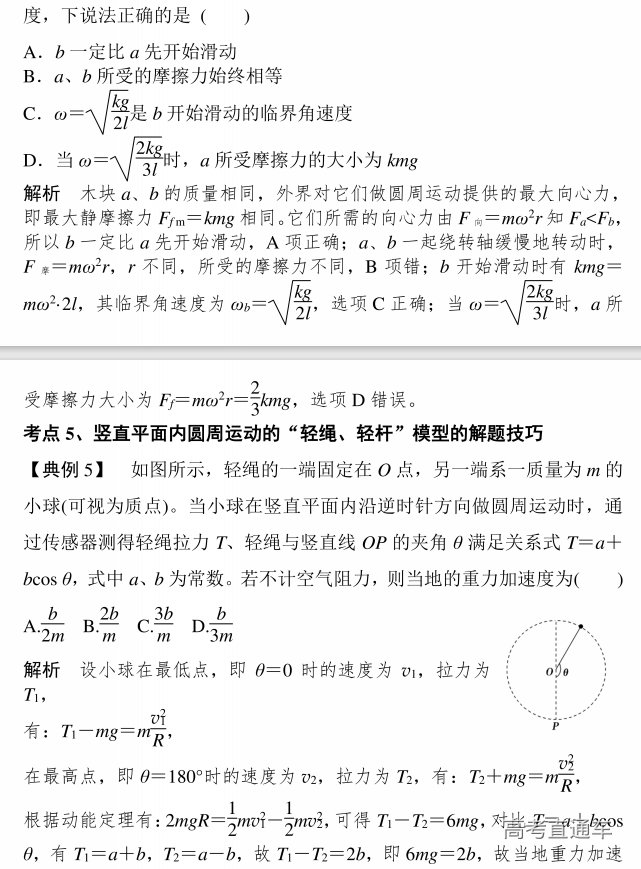 度，下说法正确的是（　　）
A．b 一定比 a 先开始滑动
B．a、b 所受的摩擦力始终相等
C．ω＝√(kg/2l)是 b 开始滑动的临界角速度
D．当 ω＝√(2kg/3l)时，a 所受摩擦力的大小为 kmg
解析　木块 a、b 的质量相同，外界对它们做圆周运动提供的最大向心力，
即最大静摩擦力 Ffm＝kmg 相同。它们所需的向心力由 F向＝mω²r 知 Fa<Fb，
所以 b 一定比 a 先开始滑动，A 项正确；a、b 一起绕转轴缓慢地转动时，
F摩＝mω²r，r 不同，所受的摩擦力不同，B 项错；b 开始滑动时有 kmg＝
mω²·2l，其临界角速度为 ωb＝√(kg/2l)，选项 C 正确；当 ω＝√(2kg/3l)时，a 所
受摩擦力大小为 Ff＝mω²r＝2/3kmg，选项 D 错误。
考点 5、竖直平面内圆周运动的“轻绳、轻杆”模型的解题技巧
【典例 5】　如图所示，轻绳的一端固定在 O 点，另一端系一质量为 m 的
小球(可视为质点)。当小球在竖直平面内沿逆时针方向做圆周运动时，通
过传感器测得轻绳拉力 T、轻绳与竖直线 OP 的夹角 θ 满足关系式 T＝a＋
bcos θ，式中 a、b 为常数。若不计空气阻力，则当地的重力加速度为(　　)
A.b/2m　B.2b/m　C.3b/m　D.b/3m
O θ
P
解析　设小球在最低点，即 θ＝0 时的速度为 v₁，拉力为
T₁，
有：T₁－mg＝mv₁²/R，
在最高点，即 θ＝180°时的速度为 v₂，拉力为 T₂，有：T₂＋mg＝mv₂²/R，
根据动能定理有：2mgR＝1/2mv₁²－1/2mv₂²，可得 T₁－T₂＝6mg，对比 T＝a＋bcos
θ，有 T₁＝a＋b，T₂＝a－b，故 T₁－T₂＝2b，即 6mg＝2b，故当地重力加速
高考直通车